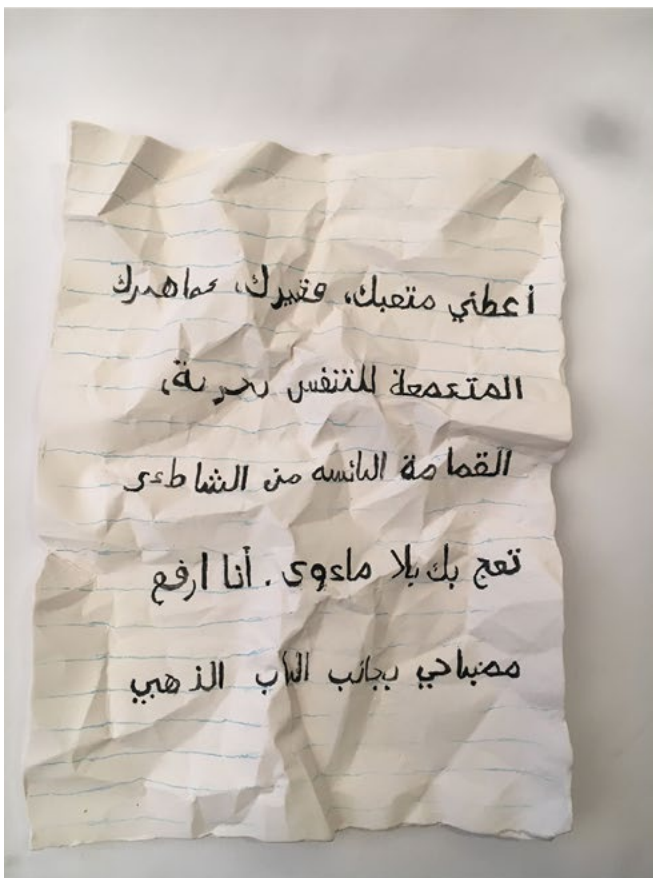 أعطني متعبك، فقيرك، عماهيرك
المتعمعة للتنفس بحرية،
القمامة البائسه من الشاطءى
تعج بك بلا ماءوى. أنا ارفع
مصباحي بجانب الباب الذهبي